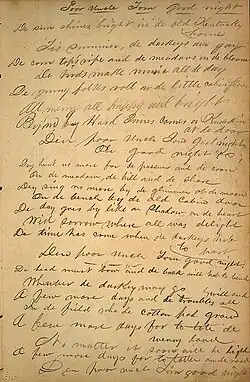 Poor Uncle Tom good night
De sun shines bright in de old Kentucky
home
Tis summer, de darkeys are gay
De corn top's ripe and de meadows in de bloom
De birds make music all de day
De young folks roll on de little cabin floor
All merry, all happy and bright
By'm by Hard Times comes a knockin
at de door
Den poor Uncle Tom good night
good night
Dey hunt no more for de possum and de coon
On de meadow, de hill and de shore
Dey sing no more by de glimmer ob de moon
On de bench by de old Cabin door
De day goes by like a Shadow on de heart
Wid sorrow when all was delight
De time has come when de darkeys hab
to part
Den poor Uncle Tom good night
De head must bow and de back will hab to bend
Wherebber de darkey may go
A few more days and de troubles all
will end
In de field where de Cotton
A few more days for to tote de
weary load
No matter it will neber be light
A few more days for to totter on de road
Den poor Uncle Tom good night